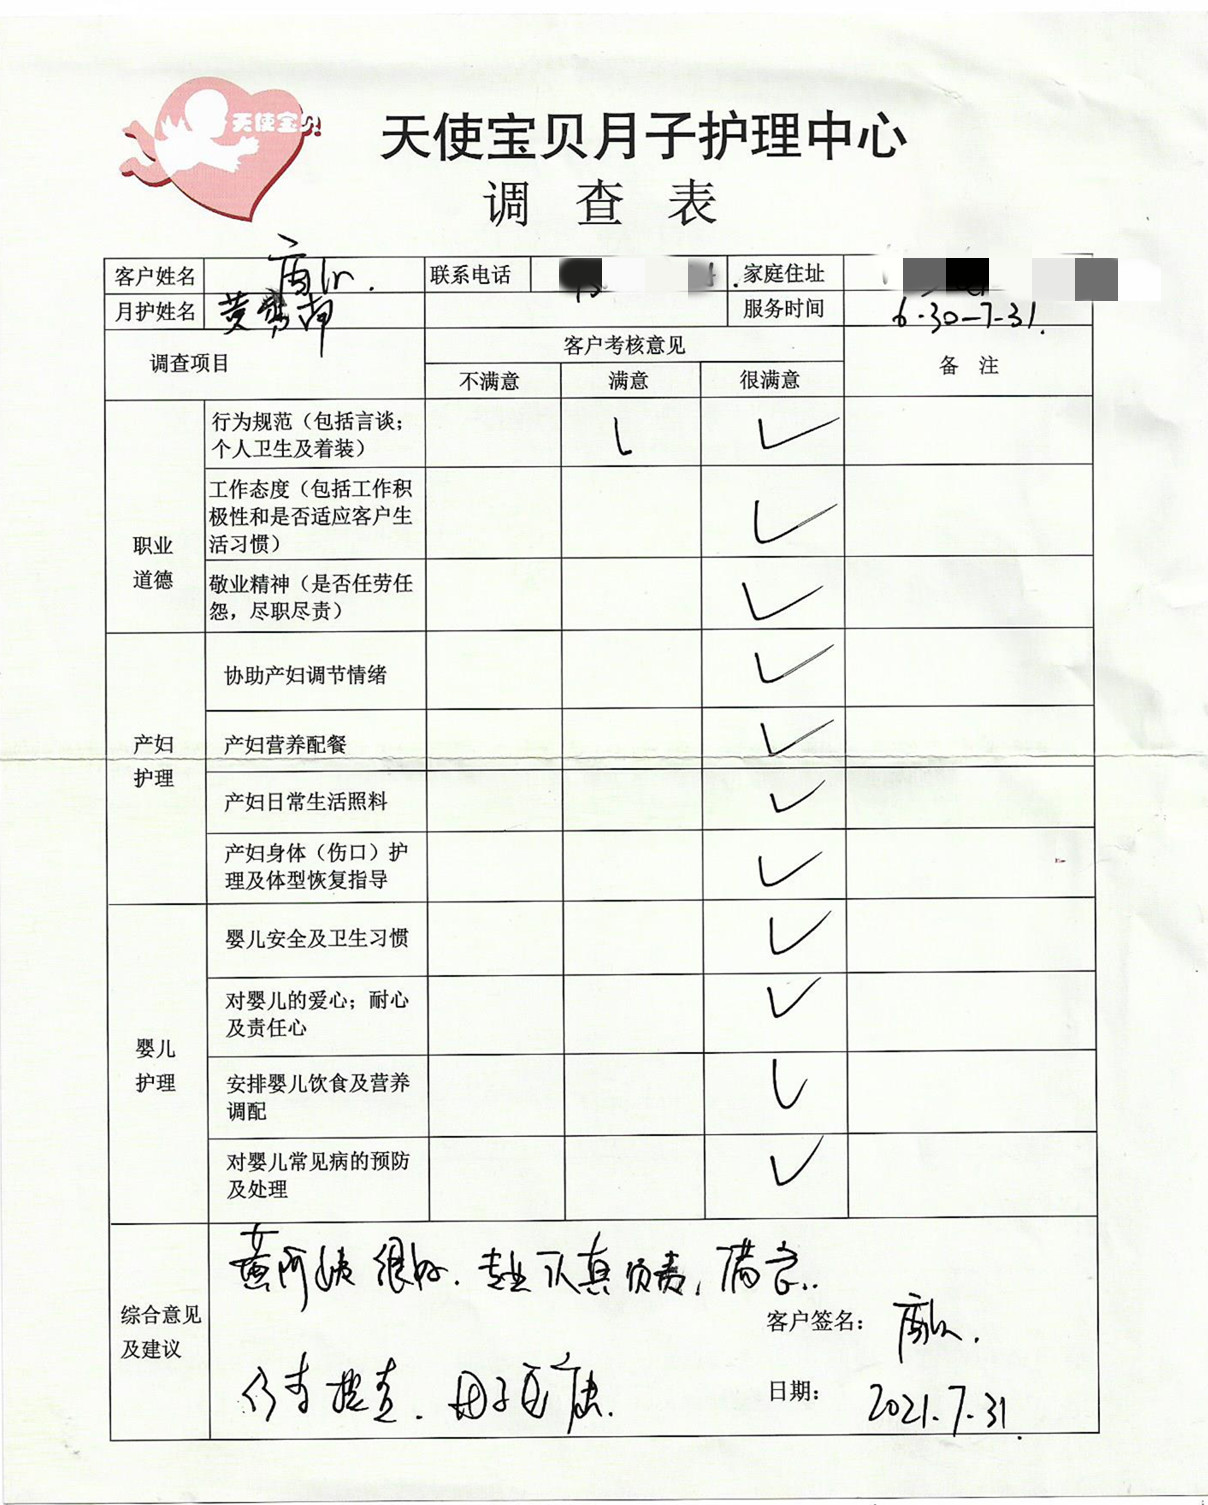 天使宝贝
天使宝贝月子护理中心
调 查 表
客户姓名 联系电话 家庭住址
月护姓名 黄 服务时间 6.30-7.31.
调查项目 客户考核意见 备 注
不满意 满意 很满意
职业
道德
行为规范（包括言谈；
个人卫生及着装）
工作态度（包括工作积
极性和是否适应客户生
活习惯）
敬业精神（是否任劳任
怨，尽职尽责）
产妇
护理
协助产妇调节情绪
产妇营养配餐
产妇日常生活照料
产妇身体（伤口）护
理及体型恢复指导
婴儿
护理
婴儿安全及卫生习惯
对婴儿的爱心；耐心
及责任心
安排婴儿饮食及营养
调配
对婴儿常见病的预防
及处理
综合意见
及建议
黄阿姨很好.专业认真负责,满意..
客户签名：
日期： 2021.7.31.